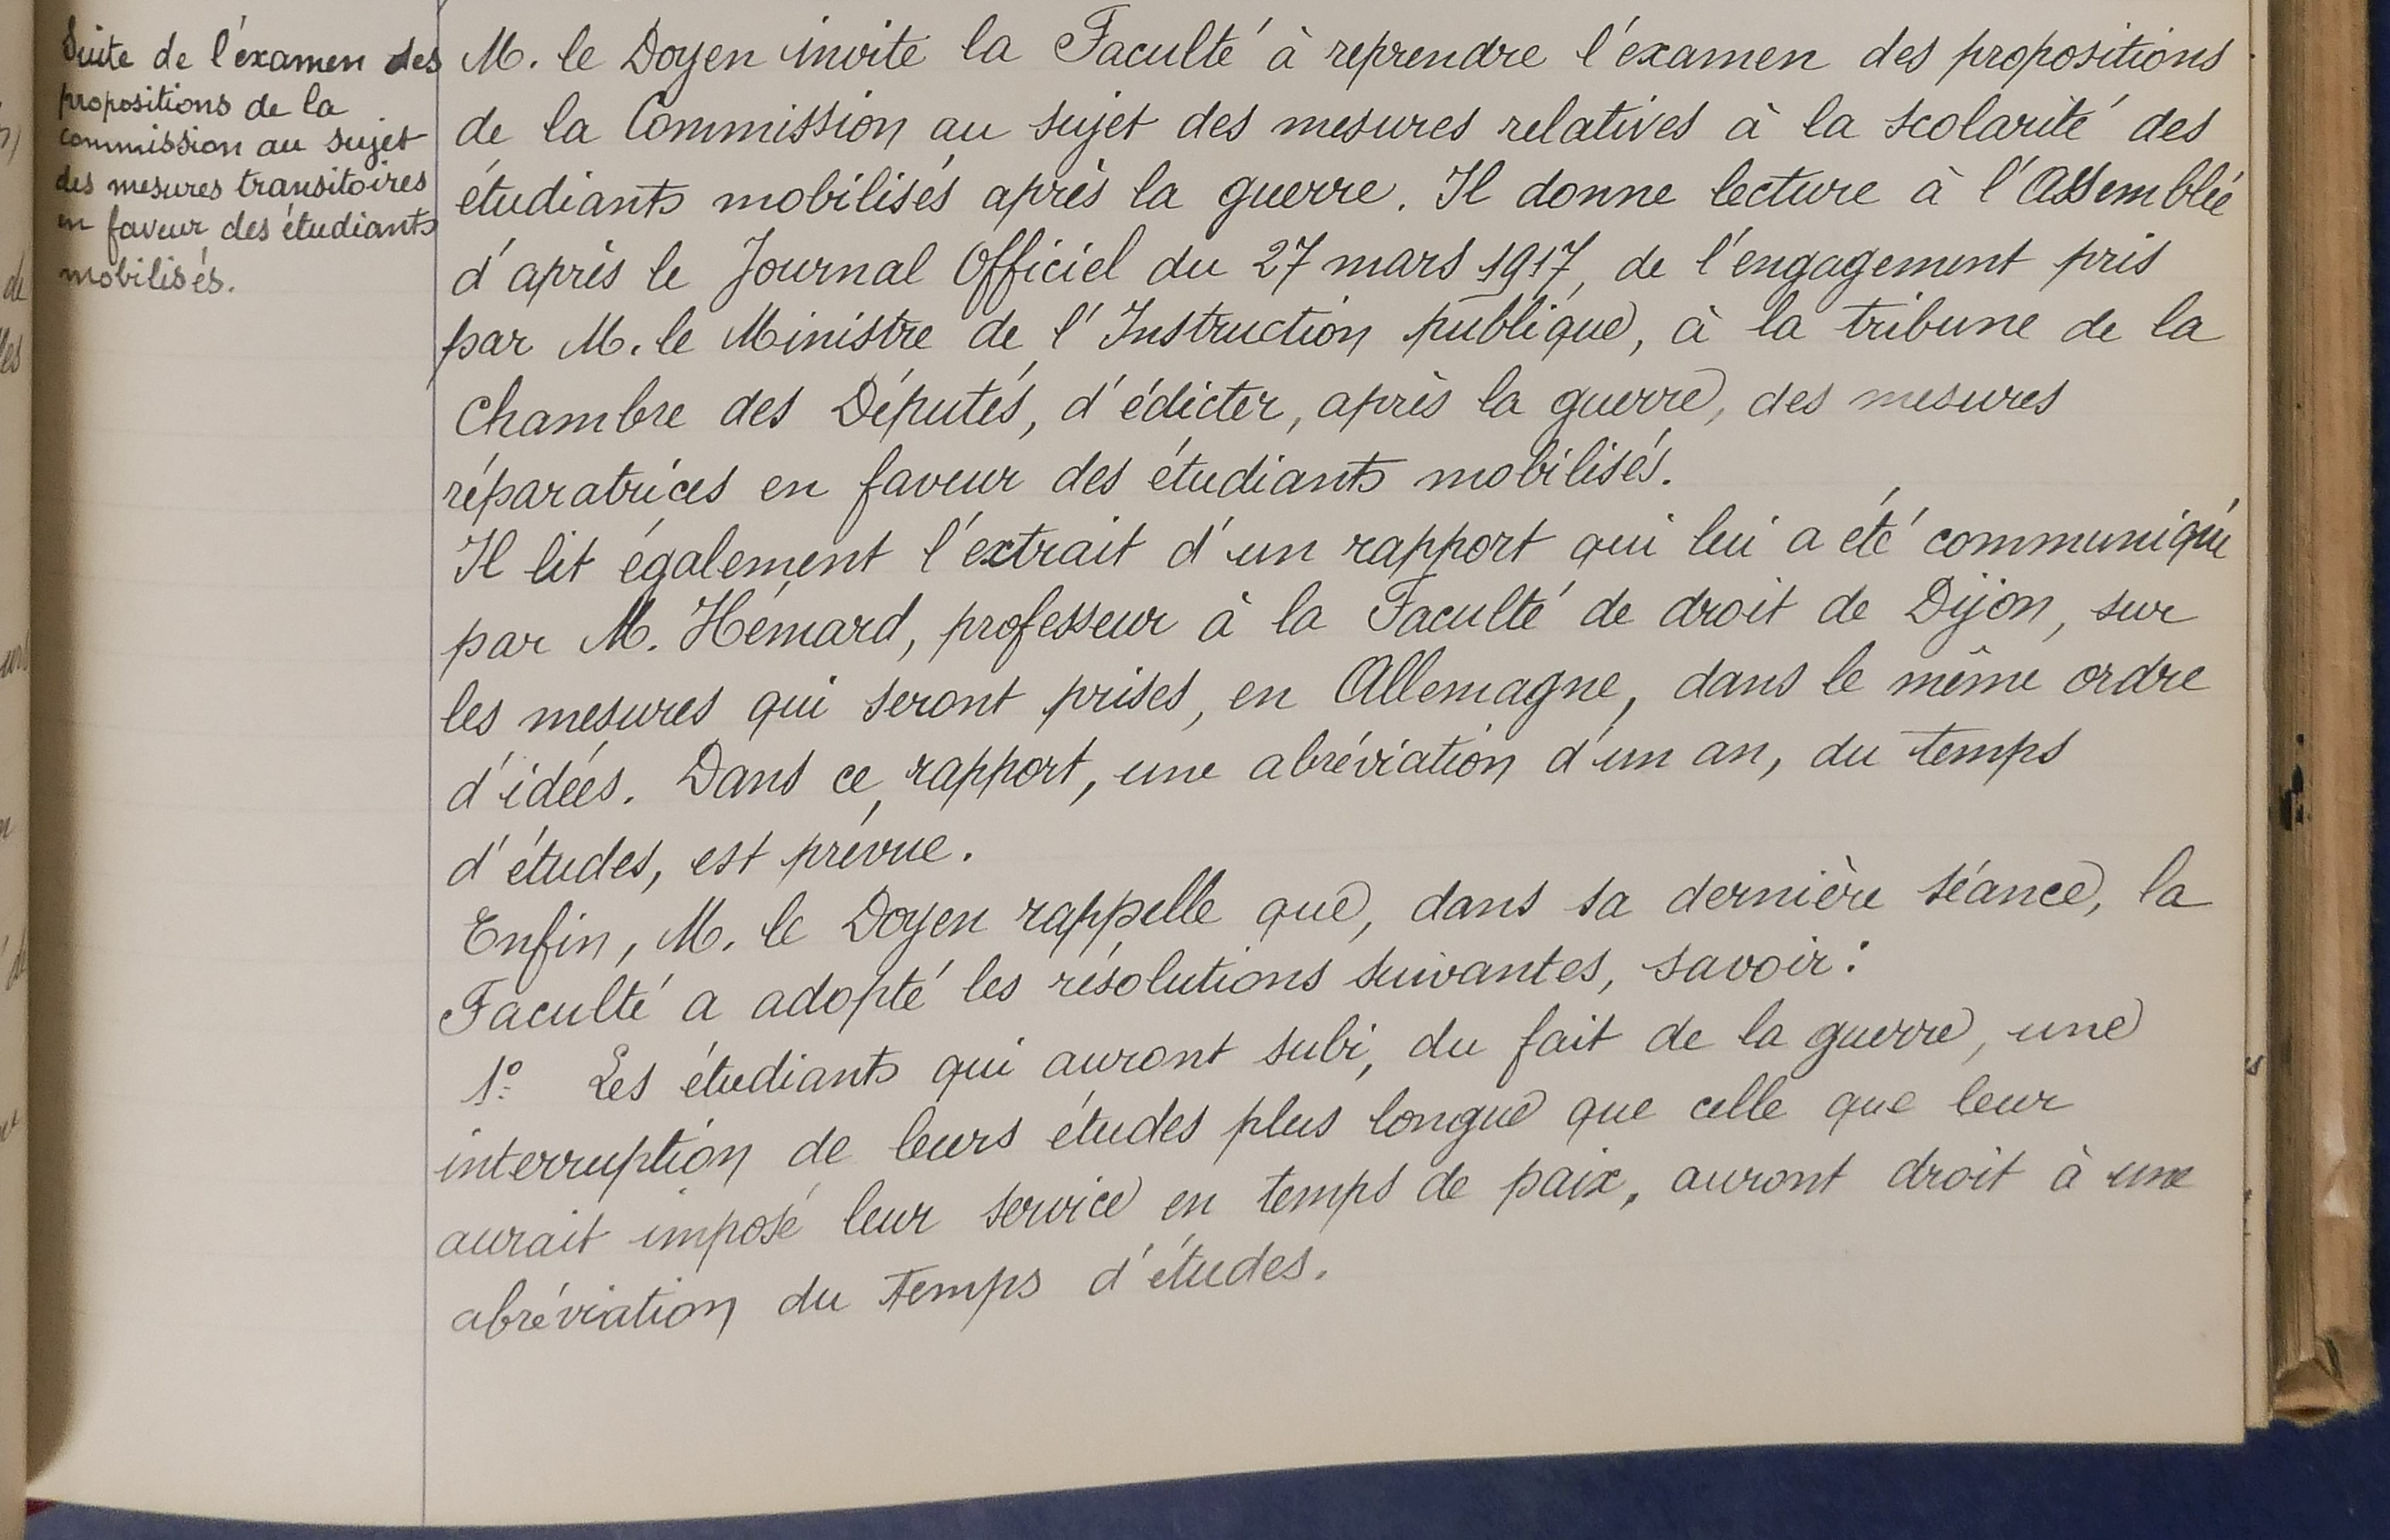 Suite de l'examen des
propositions de la
commission au sujet
des mesures transitoires
en faveur des étudiants
mobilisés.
M. le Doyen invite la Faculté à reprendre l'examen des propositions
de la Commission au sujet des mesures relatives à la scolarité des
étudiants mobilisés après la guerre. Il donne lecture à l'Assemblée
d'après le Journal Officiel du 27 mars 1917, de l'engagement pris
par M. le Ministre de l'Instruction publique, à la tribune de la
Chambre des Députés, d'édicter, après la guerre, des mesures
réparatrices en faveur des étudiants mobilisés.
Il lit également l'extrait d'un rapport qui lui a été communiqué
par M. Hémard, professeur à la Faculté de droit de Dijon, sur
les mesures qui seront prises, en Allemagne, dans le même ordre
d'idées. Dans ce rapport, une abréviation d'un an, du temps
d'études, est prévue.
Enfin, M. le Doyen rappelle que, dans sa dernière séance, la
Faculté a adopté les résolutions suivantes, savoir :
1º Les étudiants qui auront subi, du fait de la guerre, une
interruption de leurs études plus longue que celle que leur
aurait imposé leur service en temps de paix, auront droit à une
abréviation du temps d'études.